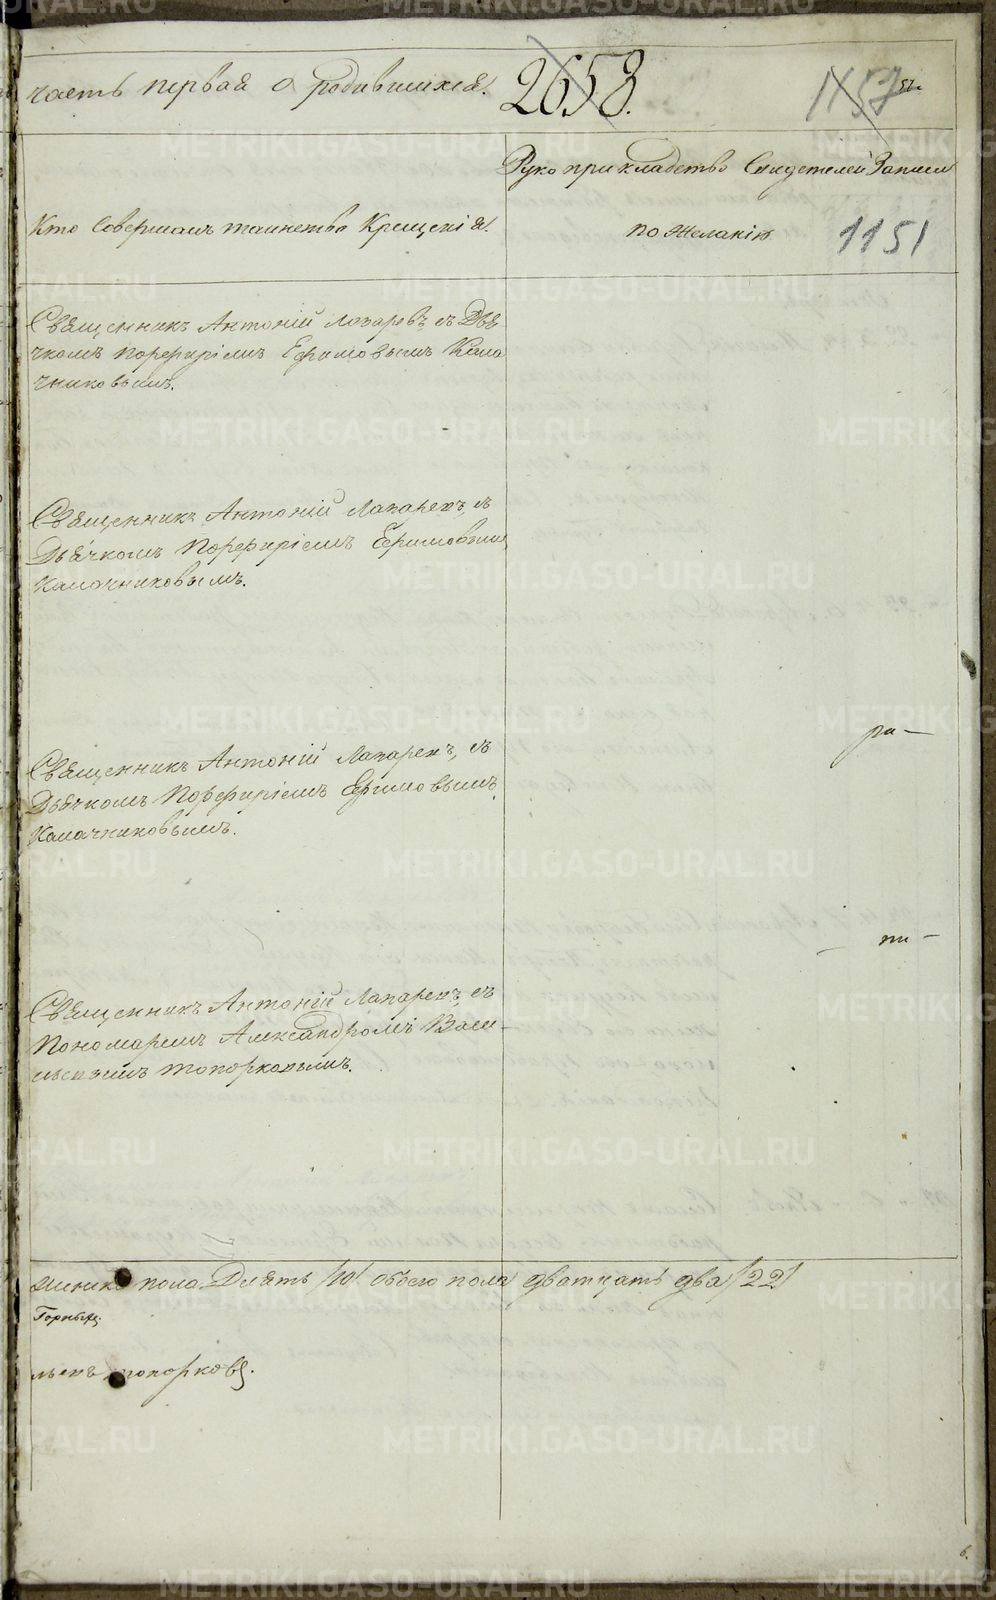 часть первая о родившихся. 2658. 1157
Рукоприкладство Свидетелей Записи
Кто Совершалъ таинство Крещенія. по желанію. 1151
Священникъ Антоній Лазаревъ, съ Дья
чкомъ Порфиріемъ Ефимовымъ Кала
чниковымъ.
Священникъ Антоній Лазаревъ, съ
Дьячкомъ Порфиріемъ Ефимовымъ
Калачниковымъ.
Священникъ Антоній Лазаревъ, съ
Дьячкомъ Порфиріемъ Ефимовымъ
Калачниковымъ.
Священникъ Антоній Лазаревъ, съ
Пономаремъ Александромъ Васи-
льевымъ Топорковымъ.
женска пола Десять /10/ обоего пола дватцать два /22/
Топорковъ.
METRIKI.GASO-URAL.RU